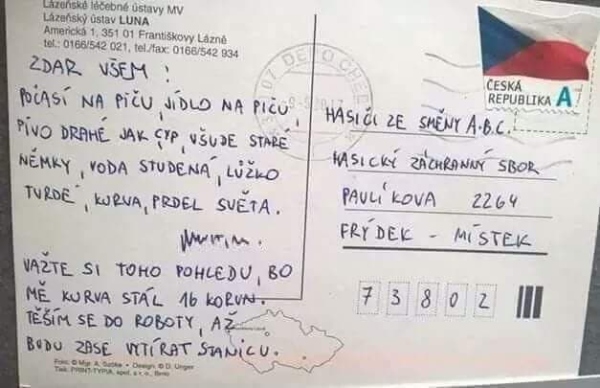 Lázeňské léčebné ústavy MV
Lázeňský ústav LUNA
Americká 1, 351 01 Františkovy Lázně
tel.: 0166/542 021, tel./fax: 0166/542 934
ZDAR VŠEM!
POČASÍ NA PIČU, JÍDLO NA PIČU,
PIVO DRAHÉ JAK ČYP, VŠUDE STARÉ
NĚMKY, VODA STUDENÁ, LŮŽKO
TVRDÉ, KURVA, PRDEL SVĚTA.
VAŽTE SI TOHO POHLEDU, BO
MĚ KURVA STÁL 16 KORUN.
TĚŠÍM SE DO ROBOTY, AŽ
BUDU ZASE VYTÍRAT STANICU.
ČESKÁ
REPUBLIKA A
07 DEPO CHEB
HASIČI ZE SMĚNY A.B.C.
HASICKÝ ZÁCHRANNÝ SBOR
PAVLÍKOVA 2264
FRÝDEK - MÍSTEK
73802
Foto: © Mgr. A. • Design: © D. Unger
Tisk: PRINT-TYPIA, spol. s r. o., Brno